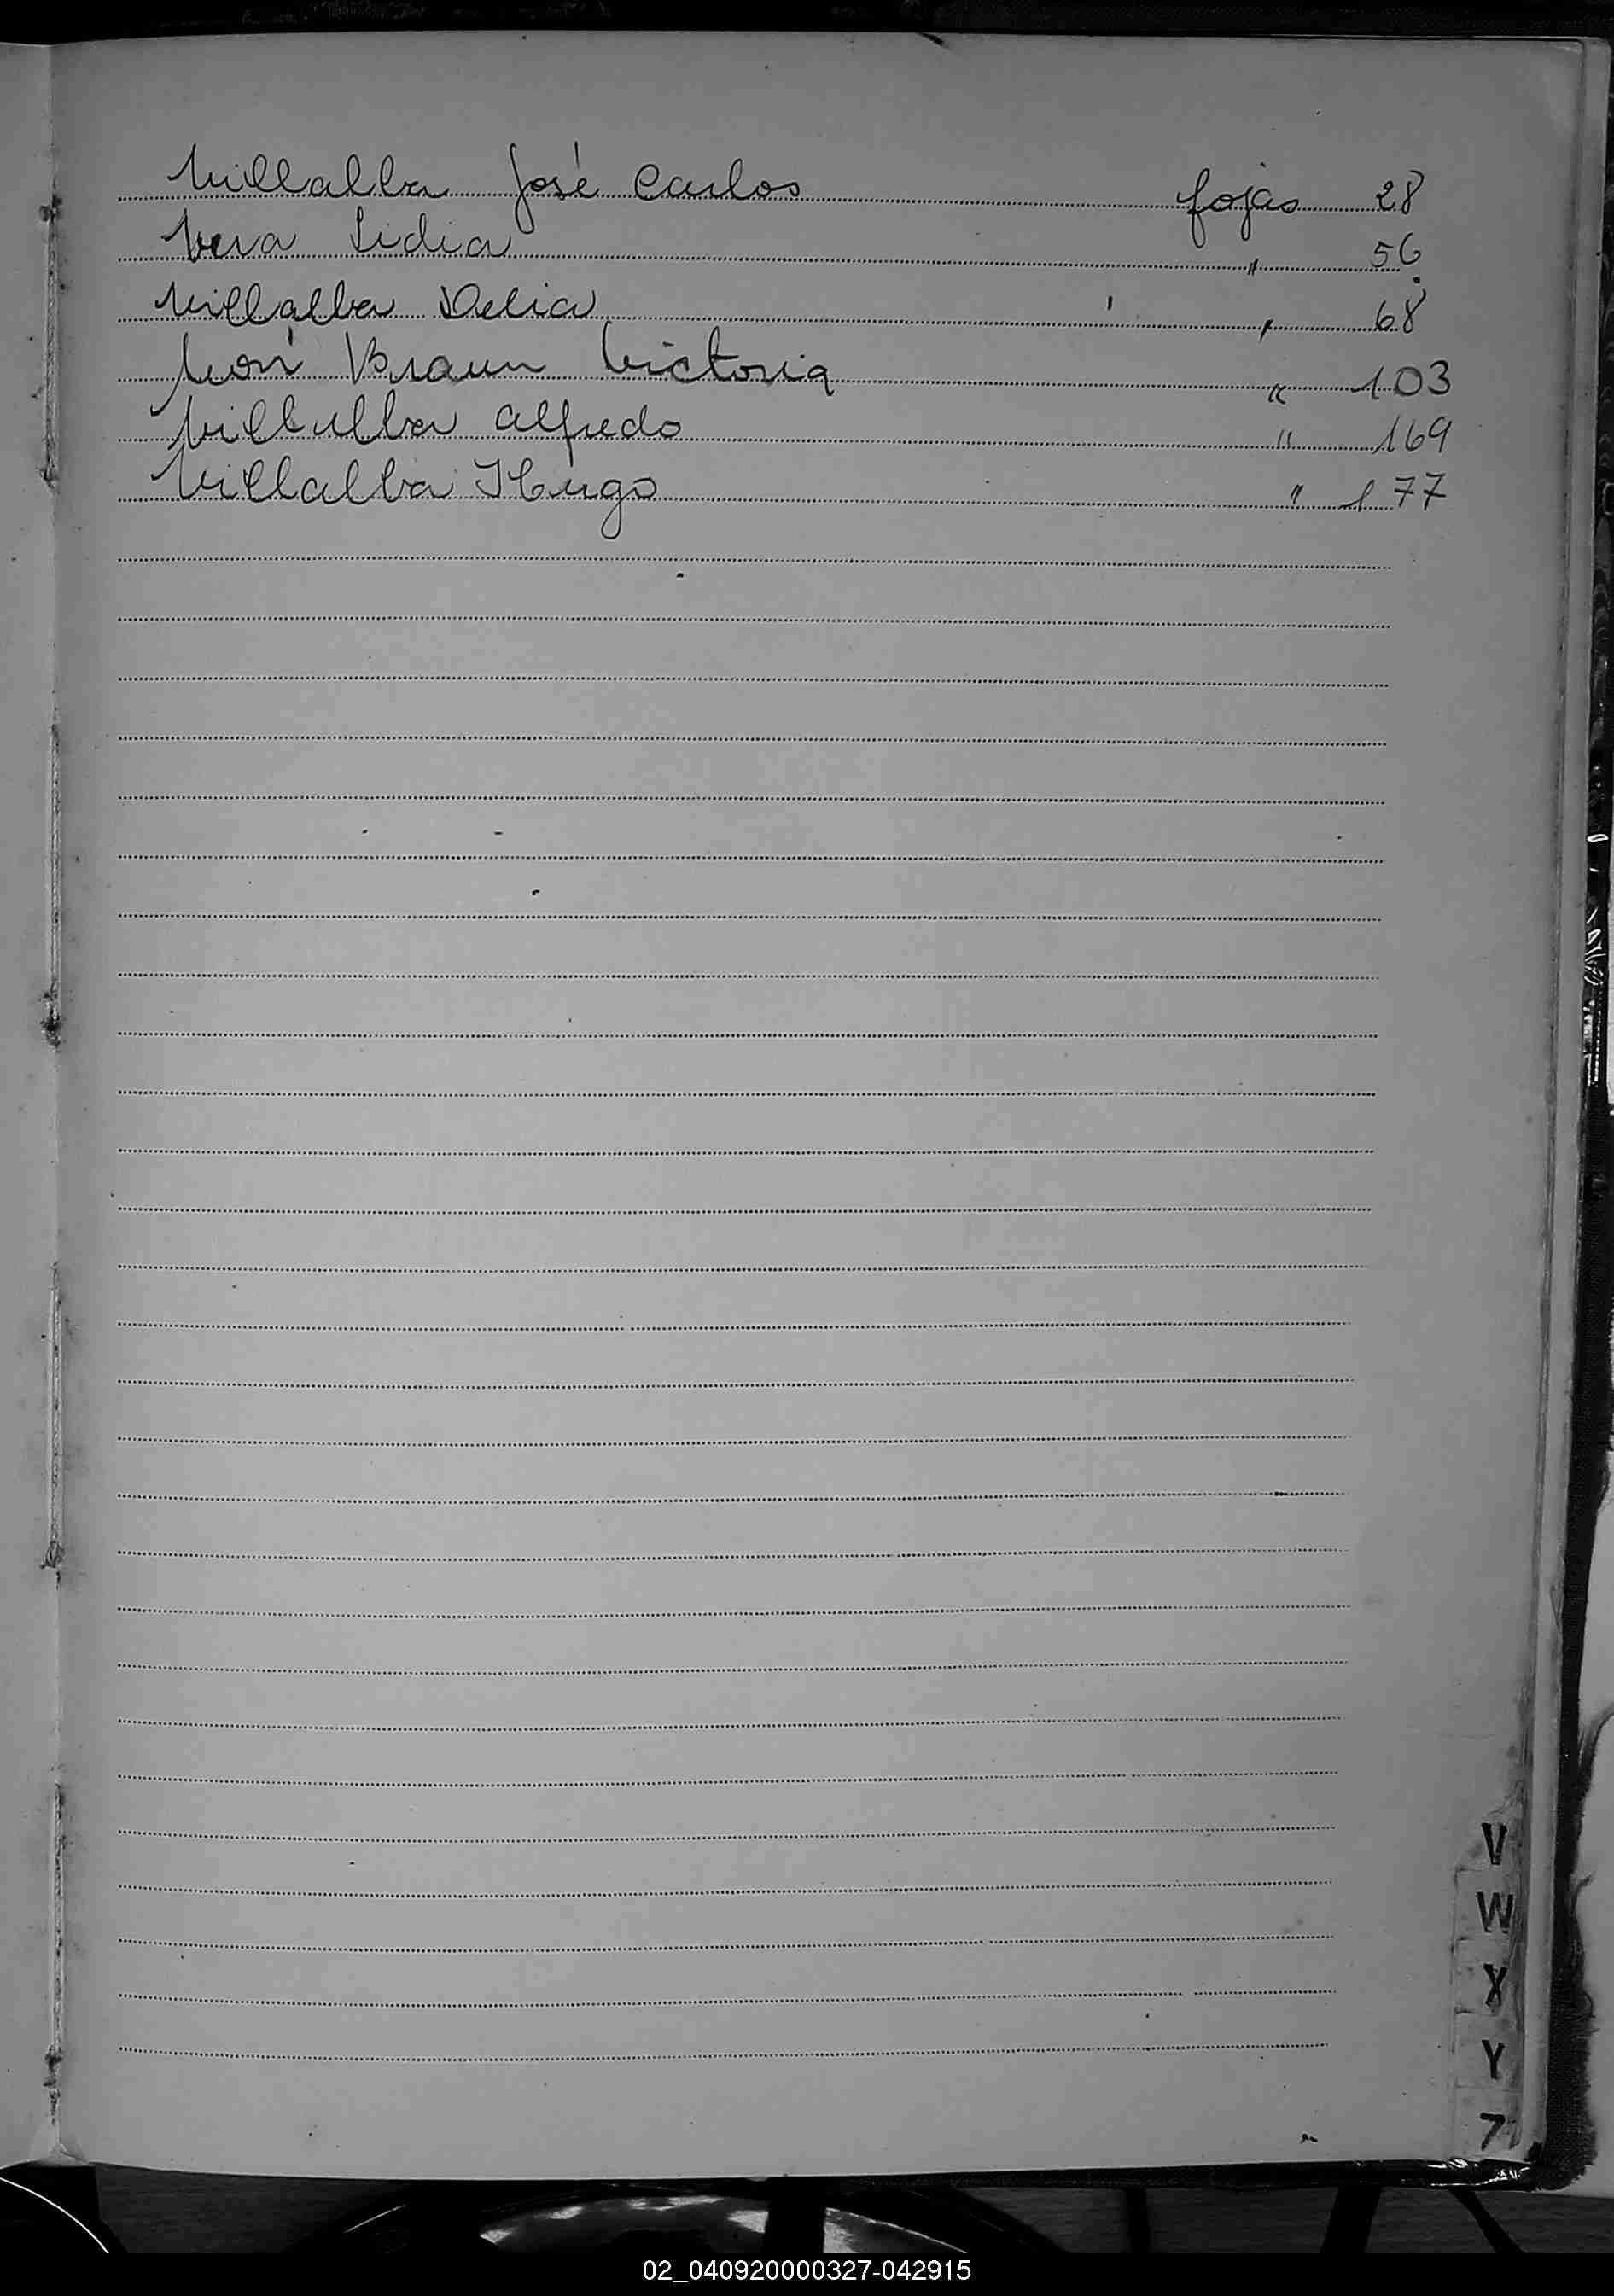 Villalba José Carlos fojas 28
Vera Lidia " 56
Villalba Delia " 68
Von Braun Victoria " 103
Villalba Alfredo " 169
Villalba Hugo " 177
V
W
X
Y
Z
02_040920000327-042915